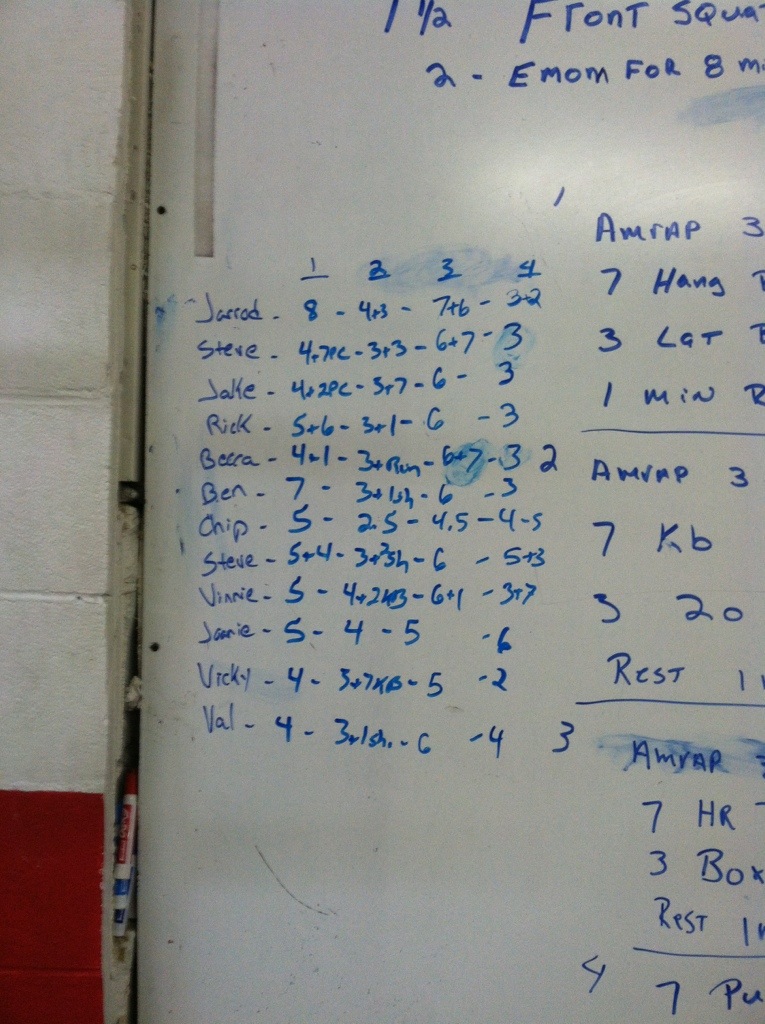 1 1/2 Front Squa
2 - Emom For 8 mi
1
Amrap 3
7 Hang
3 Lat
1 min R
2
Amrap 3
7 Kb
3 20
Rest 1
3
Amrap 3
7 HR
3 Box
Rest 1
4
7 Pu
1 2 3 4
Jarrod - 8 - 4+3 - 7+6 - 3+2
Steve - 4+7PC - 3+3 - 6+7 - 3
Jake - 4+2PC - 3+7 - 6 - 3
Rick - 5+6 - 3+1 - 6 - 3
Becca - 4+1 - 3+Run - 6+7 - 3
Ben - 7 - 3+1sh - 6 - 3
Chip - 5 - 2.5 - 4.5 - 4-5
Steve - 5+4 - 3+2sh - 6 - 5+3
Vinnie - 5 - 4+2KB - 6+1 - 3+7
Jamie - 5 - 4 - 5 - 6
Vicky - 4 - 3+7KB - 5 - 2
Val - 4 - 3+1sh. - 6 - 4